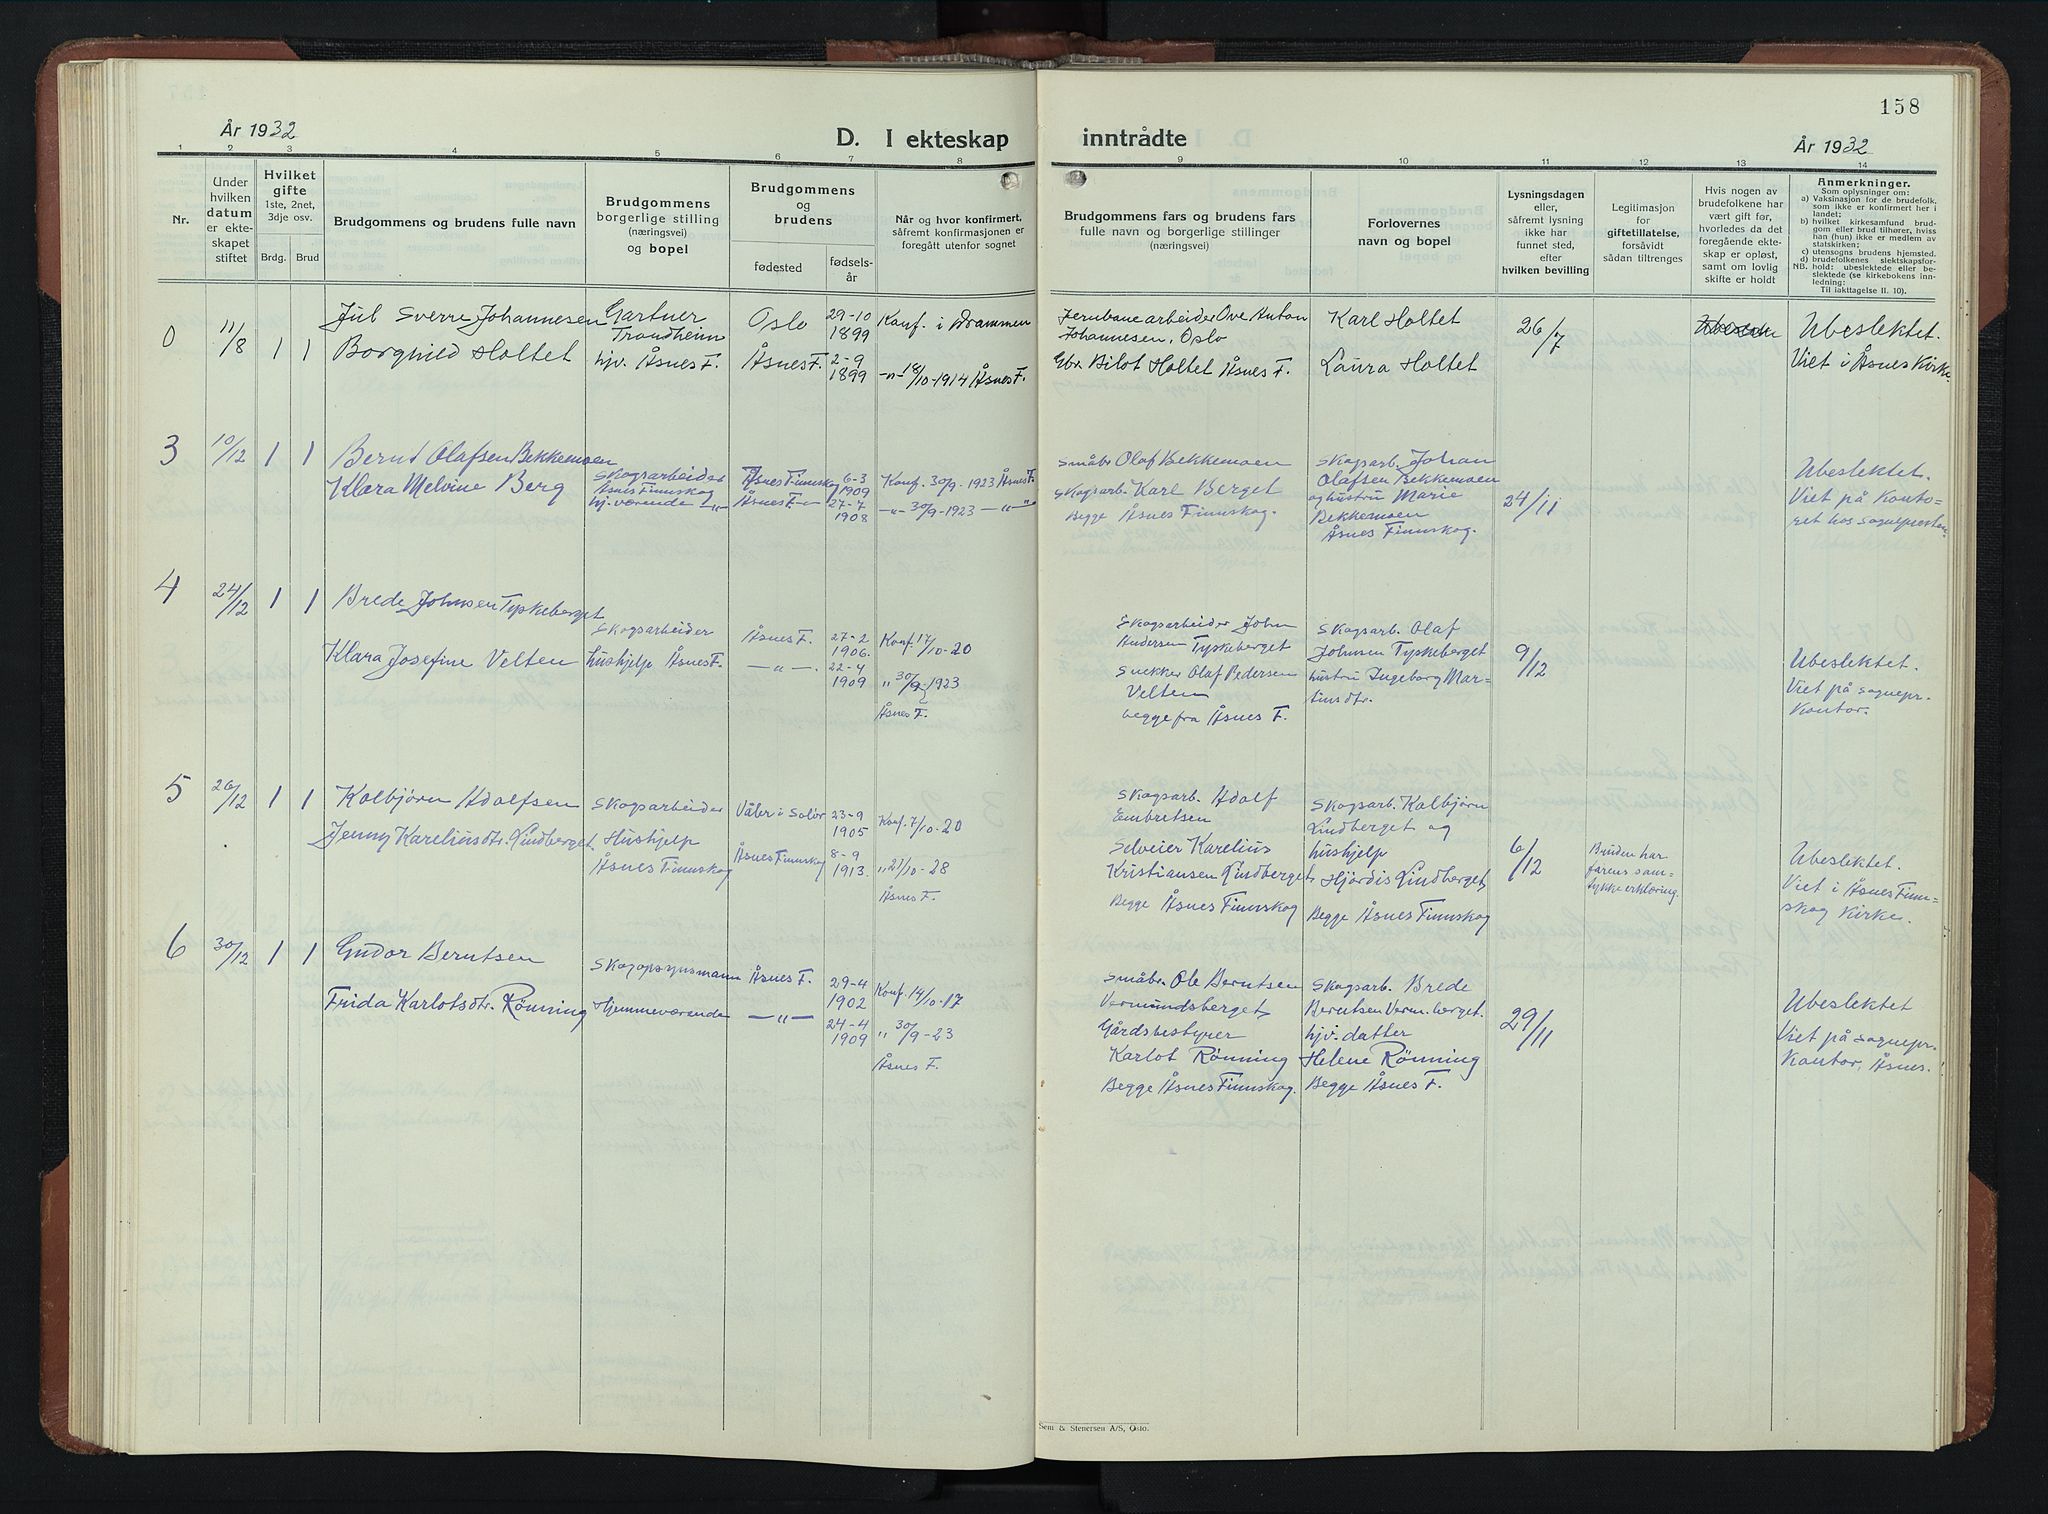 158
År 1932
D. I ekteskap inntrådte
År 1932
1 2 3 4 5 6 7 8 9 10 11 12 13 14
Nr.
Under
hvilken
datum
er ekte-
skapet
stiftet
Hvilket
gifte
1ste, 2net,
3dje osv.
Brdg. Brud
Brudgommens og brudens fulle navn
Brudgommens
borgerlige stilling
(næringsvei)
og bopel
Brudgommens
og
brudens
fødested
fødsels-
år
Når og hvor konfirmert,
såfremt konfirmasjonen er
foregått utenfor sognet
Brudgommens fars og brudens fars
fulle navn og borgerlige stillinger
(næringsvei)
Forlovernes
navn og bopel
Lysningsdagen
eller,
såfremt lysning
ikke har
funnet sted,
efter
hvilken bevilling
Legitimasjon
for
giftetillatelse,
forsåvidt
sådan tiltrenges
Hvis nogen av
brudefolkene har
vært gift før,
hvorledes da det
foregående ekte-
skap er opløst,
samt om lovlig
skifte er holdt
Anmerkninger.
Som oplysninger om:
a) Vaksinasjon for de brudefolk,
som ikke er konfirmert her i
landet;
b) hvilket kirkesamfund brud-
gom eller brud tilhører, hviss
han (hun) ikke er medlem av
statskirken;
c) utensogns brudens hjemsted.
d) brudefolkenes slektskapsfor-
NB. hold: ubeslektede eller be-
slektede (se kirkebokens inn-
ledning:
Til iakttagelse II. 10).
0 11/8 1 1
Jul Sverre Johannesen
Borghild Holtet
Gartner
Trondheim
hjv. Åsnes F.
Oslo
Åsnes F.
29-10
1899
2-9
1899
Konf. i Drammen
-"- 18/10-1914 Åsnes F.
Jernbanearbeider Ove Anton
Johannesen, Oslo
Gbr. Bilot Holtet Åsnes F.
Karl Holtet
Laura Holtet
26/7
Ubeslektet.
Viet i Åsnes Kirke.
3 10/12 1 1
Bernt Olafsen Bekkemoen
Klara Melvine Berg
Skogsarbeider
Åsnes Finnskog
hj.værende -"-
Åsnes Finnskog
Åsnes F-
6-3
1909
27-7
1908
Konf. 30/9-1923 Åsnes F.
-"- 30/9-1923 -"-
Småbr. Olaf Bekkemoen
Skogsarb. Karl Berget
Begge Åsnes Finnskog.
Skogsarb. Johan
Olafsen Bekkemoen
og hustru Marie
Bekkemoen
Åsnes Finnskog.
24/11
Ubeslektet.
Viet på Konto-
ret hos sognepresten.
4 24/12 1 1
Brede Johnsen Tyskeberget
Klara Josefine Velten
Skogsarbeider
hushjelp Åsnes F.
Åsnes F.
-"-.
27-2
1906.
22-4
1909
Konf. 17/10-20
" 30/9-1923
Åsnes F.
Skogsarbeider John
Andersen Tyskeberget
Snekker Olaf Pedersen
Velten
begge fra Åsnes F.
Skogsarb. Olaf
Johnsen Tyskeberget
hustru Ingeborg Mar-
tinsdtr.
9/12
Ubeslektet.
Viet på sognepr.
Kontor.
5 26/12 1 1
Kolbjørn Adolfsen
Jenny Kareliusdtr. Lindberget.
Skogsarbeider
Hushjelp
Åsnes Finnskog
Våler i Solør
Åsnes Finnskog
23-9
1905
8-9
1913.
Konf. 7/10-20
" 21/10-28
Åsnes F.
Skogsarb. Adolf
Embretsen
Selveier Karelius
Kristiansen Lindberget
Begge Åsnes Finnskog
Skogsarb. Kolbjørn
Lindberget og
hushjelp
Hjørdis Lindberget,
Begge Åsnes Finnskog
6/12
Bruden har
farens sam-
tykkeerklæring.
Ubeslektet.
Viet i Åsnes Finn-
skog Kirke.
6 30/12 1 1
Gudor Berntsen
Frida Karlotsdtr. Rönning
Skogopsynsmann
Hjemmeværende
Åsnes F.
-"-
29-4
1902
24-4
1909
Konf. 14/10-17
" 30/9-23
Åsnes F.
Småbr. Ole Berntsen
Vermundsberget,
Gårdsbestyrer
Karlot Rönning
Begge Åsnes Finnskog.
Skogsarb. Brede
Berntsen Verm.berget.
hjv. datter
Helene Rönning
Begge Åsnes F.
29/11
Ubeslektet
Viet på sognepr.
Kontor, Åsnes.
Sem & Stenersen A/S, Oslo.